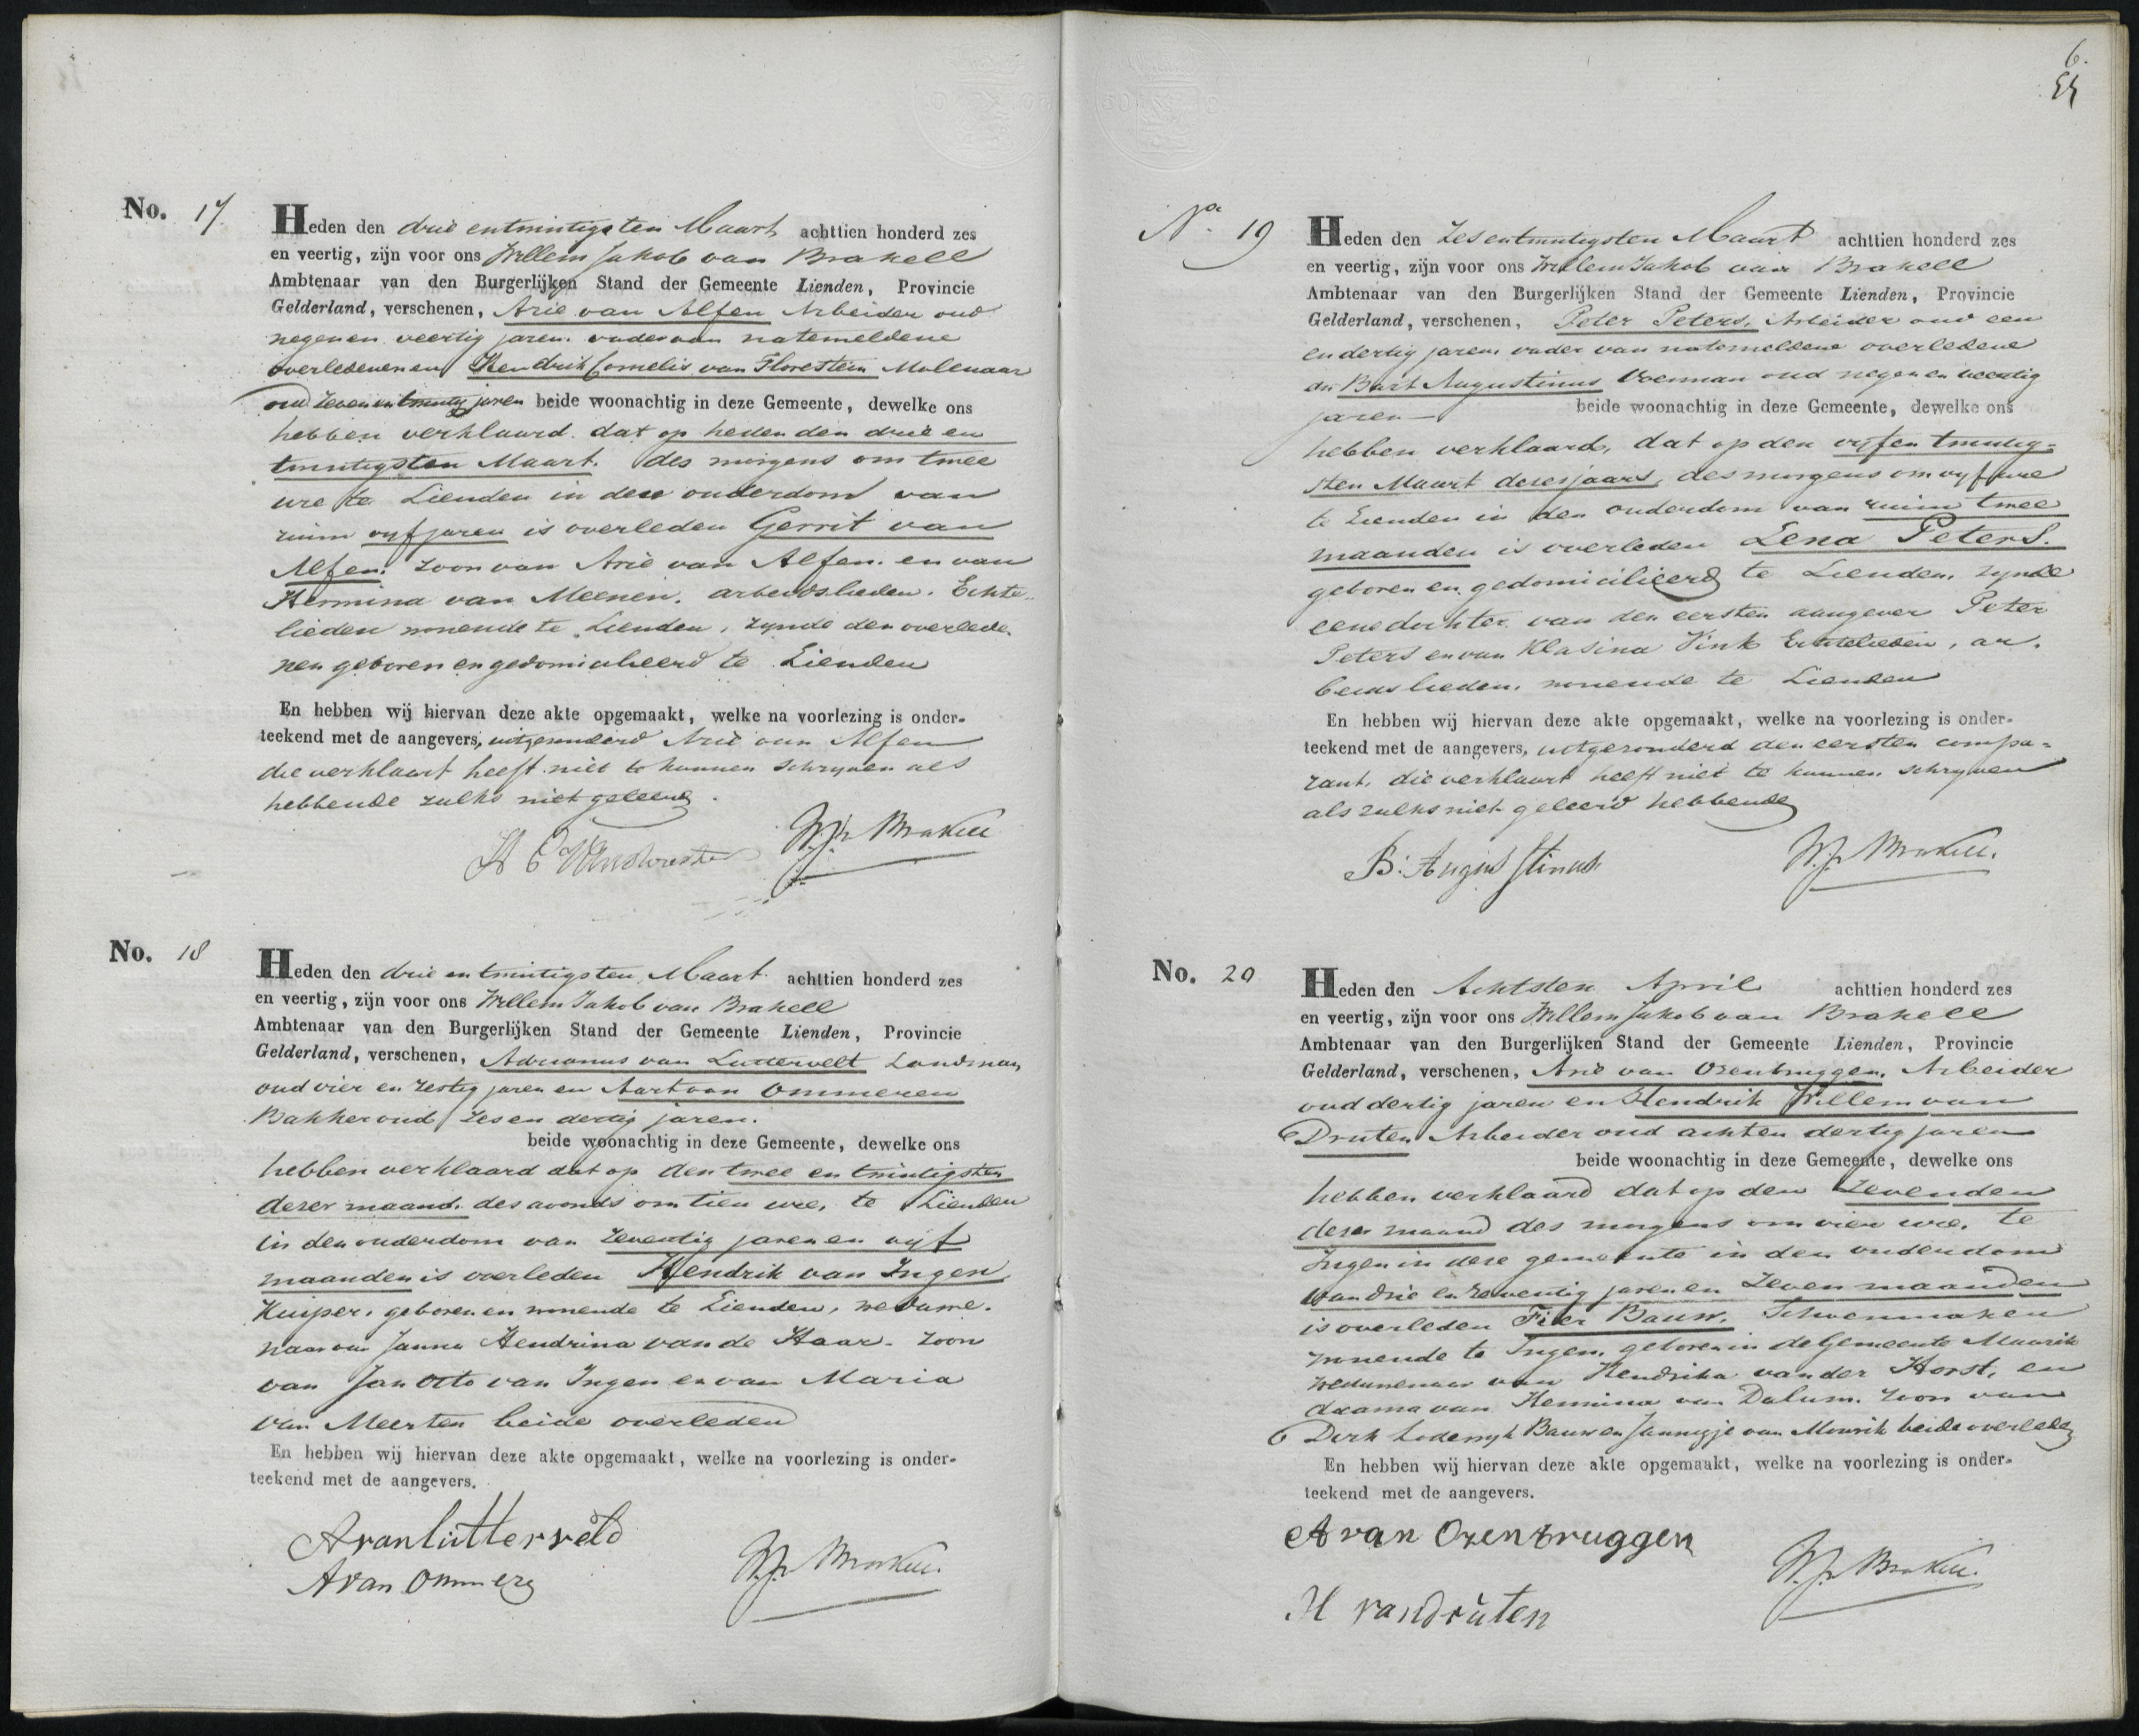 No. 17.
Heden den drie entwintigsten Maart achttien honderd zes
en veertig, zijn voor ons Willem Jakob van Brakell
Ambtenaar van den Burgerlijken Stand der Gemeente Lienden, Provincie
Gelderland, verschenen, Arie van Alfen Arbeider oud
negen en veertig jaren. vader van natemeldene
overledenen en Hendrik Cornelis van Florestein Molenaar
oud zeven en twintig jaren beide woonachtig in deze Gemeente, dewelke ons
hebben verklaard. dat op heden den drie en
twintigsten Maart. des morgens om twee
ure te Lienden in deze ouderdom van
ruim vyf jaren is overleden Gerrit van
Alfen. zoon van Arie van Alfen. en van
Hermina van Meenen. arbeidslieden. Echte-
lieden wonende te Lienden, zynde den overlede-
nen geboren en gedomicilieerd te Lienden
En hebben wij hiervan deze akte opgemaakt, welke na voorlezing is onder-
teekend met de aangevers, uitgezonderd Arie van Alfen
die verklaart heeft niet te kunnen schryven als
hebbende zulks niet geleerd.
W.J. v Brakell
No. 18
Heden den drie en twintigsten Maart. achttien honderd zes
en veertig, zijn voor ons Willem Jakob van Brakell
Ambtenaar van den Burgerlijken Stand der Gemeente Lienden, Provincie
Gelderland, verschenen, Adrianus van Lutterveldt Landman,
oud vier en zestig jaren en Aart van Ommeren
Bakker oud zes en dertig jaren.
beide woonachtig in deze Gemeente, dewelke ons
hebben verklaard dat op den twee en twintigsten
dezer maand. des avonds om tien ure, te Lienden
in den ouderdom van zeventig jaren en vyf
maanden is overleden Hendrik van Ingen
Kuiper, geboren en wonende te Lienden, weduwe-
naar van Janna Hendrina van de Haar. zoon
van Jan Otto van Ingen en van Maria
van Meerten beide overleden
En hebben wij hiervan deze akte opgemaakt, welke na voorlezing is onder-
teekend met de aangevers.
A van lutterveld
A van Ommeren
W.J. v Brakell.
6.
No. 19
Heden den Zes entwintigsten Maart achttien honderd zes
en veertig, zijn voor ons Willem Jakob van Brakell
Ambtenaar van den Burgerlijken Stand der Gemeente Lienden, Provincie
Gelderland, verschenen, Peter Peters, Arbeider oud een
en dertig jaren vader van natemeldene overledene
en Bart Augustinus Voerman oud negen en veertig
jaren beide woonachtig in deze Gemeente, dewelke ons
hebben verklaard, dat op den vyf en twintig-
sten Maart dezes jaars, des morgens om vyf ure
te Lienden in den ouderdom van ruim twee
maanden is overleden Lena Peters.
geboren en gedomicilieerd te Lienden, zynde
eene dochter van den eersten aangever Peter
Peters en van Klasina Vink Echtelieden, ar-
beidslieden, wonende te Lienden
En hebben wij hiervan deze akte opgemaakt, welke na voorlezing is onder-
teekend met de aangevers, uitgezonderd den eersten compa-
rant, die verklaart heeft niet te kunnen schryven
als zulks niet geleerd hebbende
B: Augustinus
W.J. v Brakell.
No. 20
Heden den Achtsten April achttien honderd zes
en veertig, zijn voor ons Willem Jakob van Brakell
Ambtenaar van den Burgerlijken Stand der Gemeente Lienden, Provincie
Gelderland, verschenen, Arie van Ozenbruggen, Arbeider
oud dertig jaren en Hendrik Willem van
Druten Arbeider oud acht en dertig jaren
beide woonachtig in deze Gemeente, dewelke ons
hebben verklaard dat op den zevenden
dezer maand des morgens om vier ure, te
Ingen in deze gemeente in den ouderdom
van drie en zeventig jaren en zeven maanden
is overleden Fiker Bauw. Schoenmaker
wonende te Ingen, geboren in de Gemeente Maurik
weduwenaar van Hendrika van der Horst, en
daarna van Hermina van Dalum. zoon van
Dirk Lodewyk Bauw en Jannigje van Mourik beide overleden
En hebben wij hiervan deze akte opgemaakt, welke na voorlezing is onder-
teekend met de aangevers.
A van Ozenbruggen
H van druten
W.J. v Brakell.